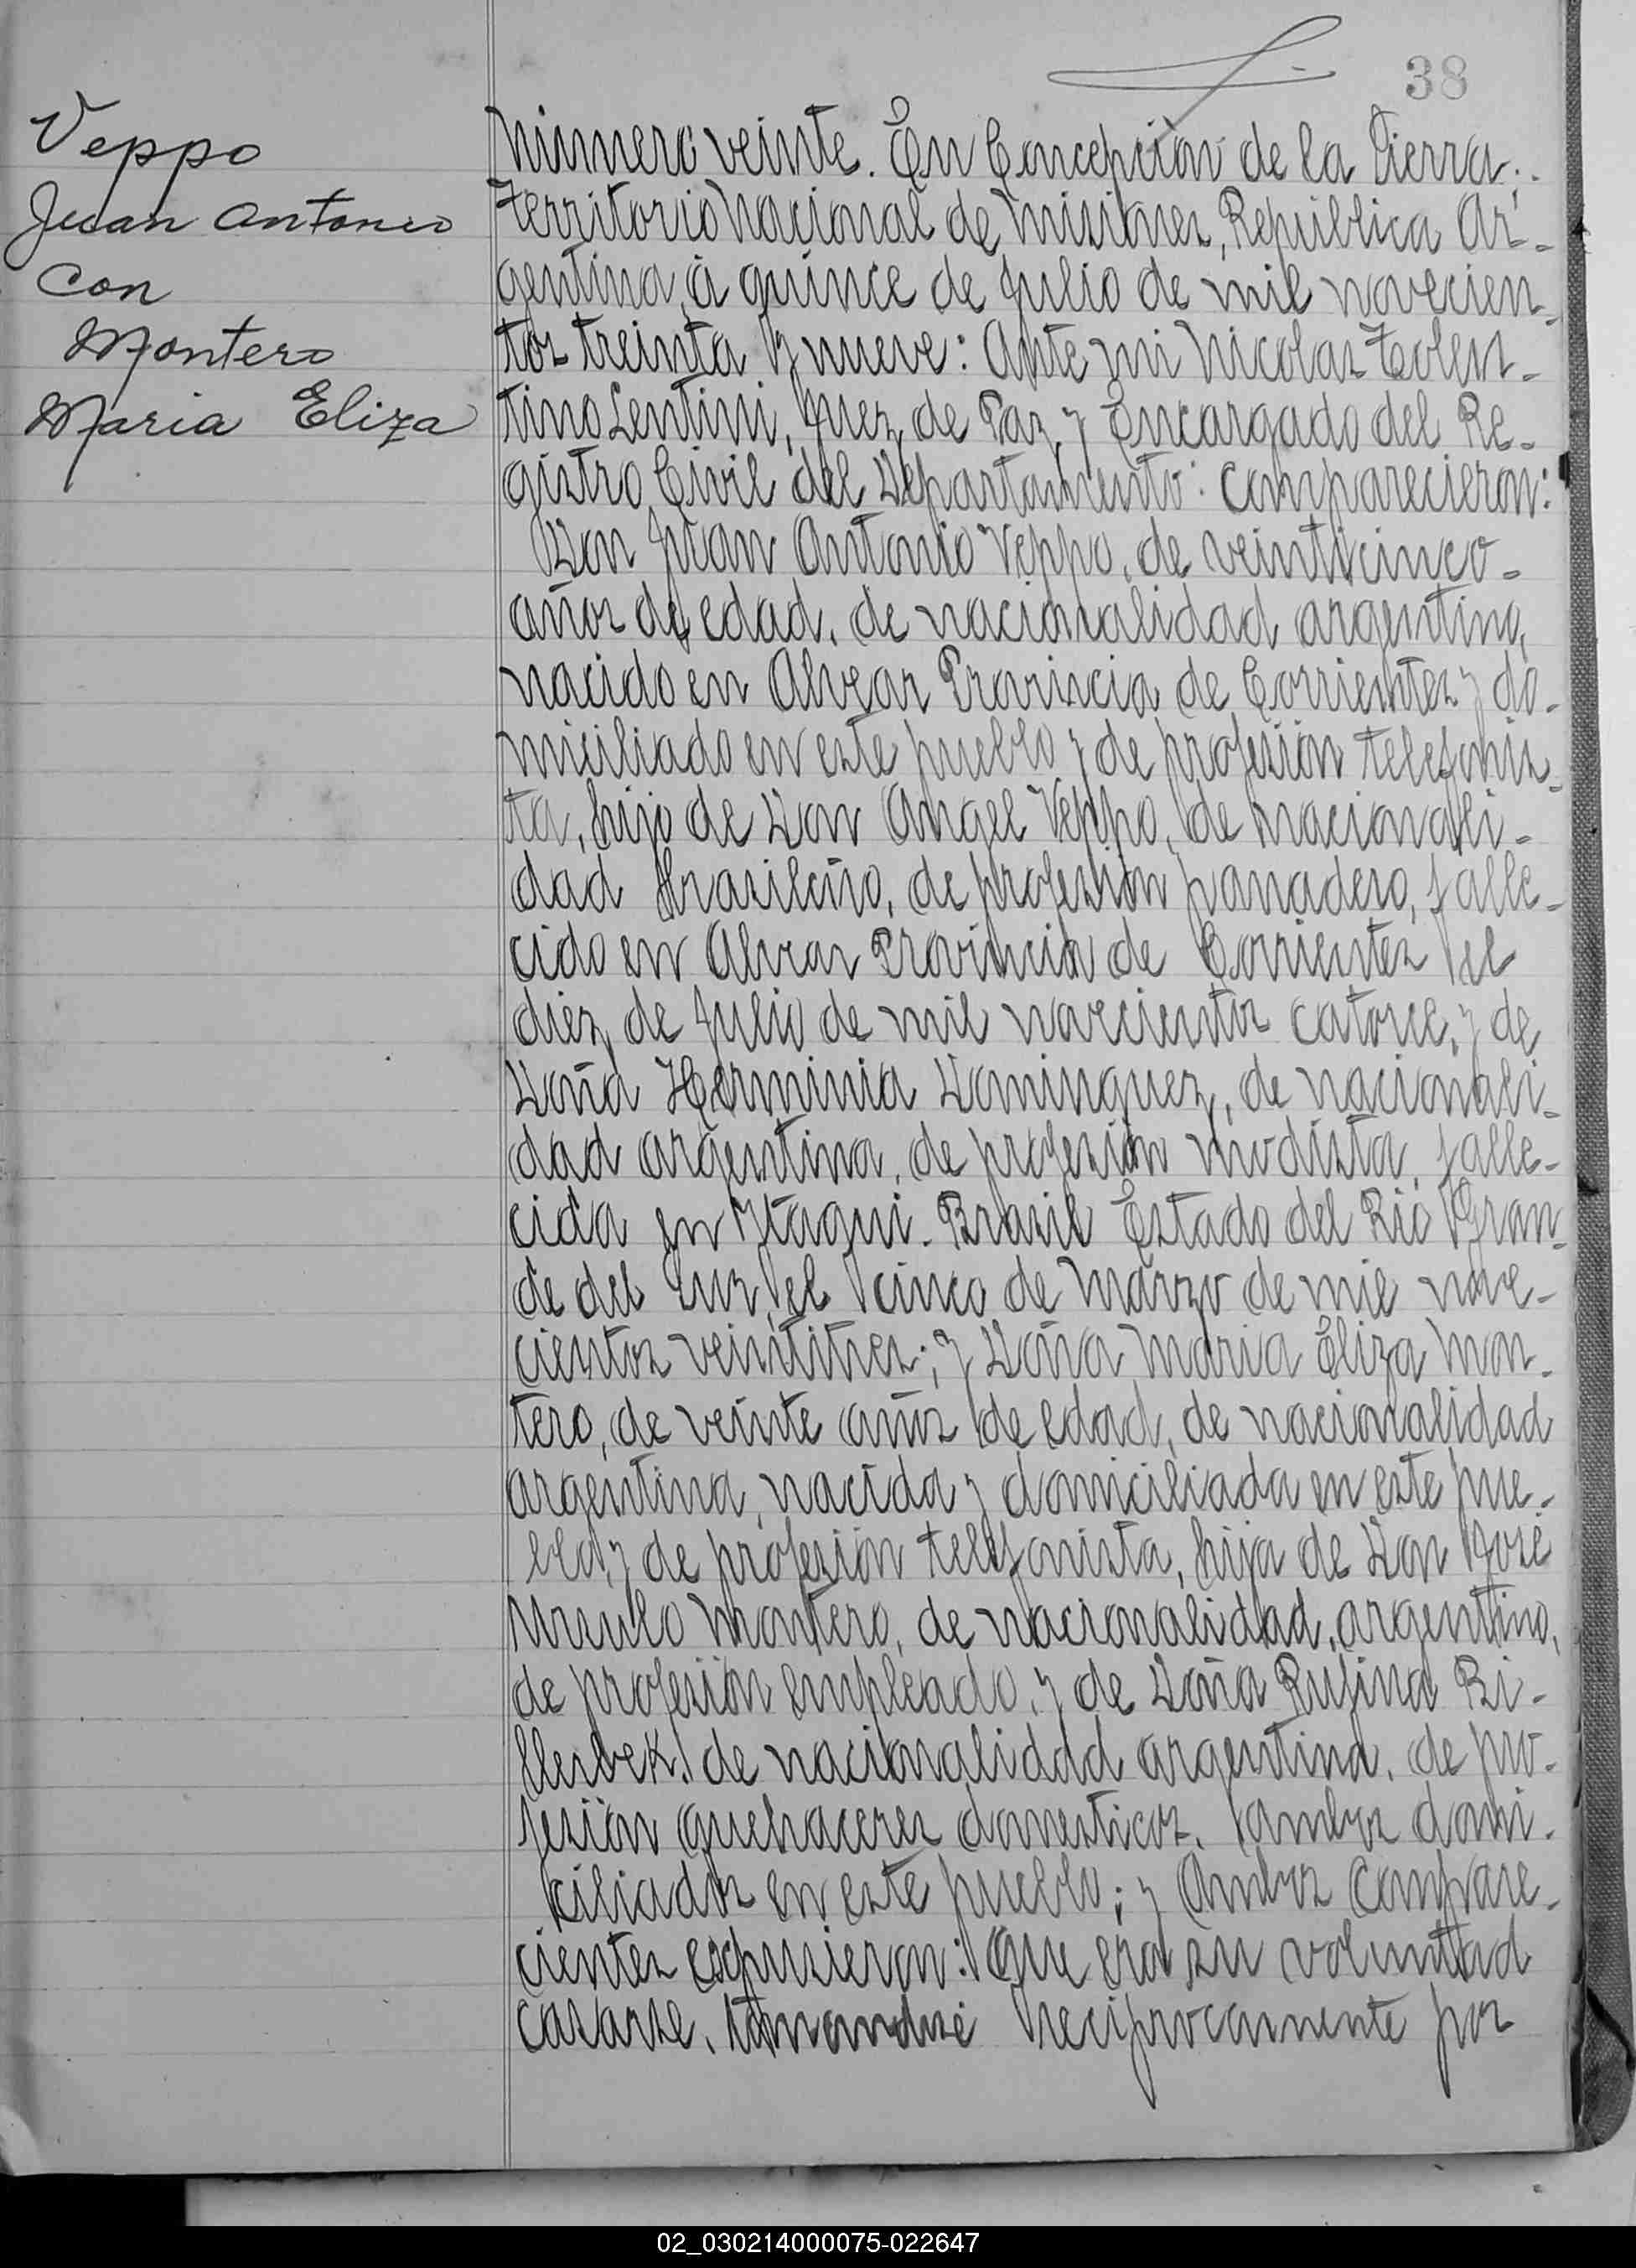 38
Veppo
Juan Antonio
con
Montero
Maria Eliza
Número veinte. En Concepción de la Sierra,
Territorio Nacional de Misiones, República Ar-
gentina, á quince de Julio de mil novecien-
tos treinta y nueve: Ante mi Nicolas Tolen-
tino Lentini, Juez de Paz y Encargado del Re-
gistro Civil del Departamento: comparecieron:
Don Juan Antonio Veppo, de veinticinco
años de edad, de nacionalidad argentino,
nacido en Alvear Provincia de Corrientes y do-
miciliado en este pueblo y de profesión telefonis-
ta, hijo de Don Angel Veppo, de nacionali-
dad Brasileño, de profesión panadero, falle-
cido en Alvear Provincia de Corrientes el
diez de Julio de mil novecientos catorce, y de
Doña Herminia Dominguez, de nacionali-
dad argentina, de profesión modista, falle-
cida en Itaqui. Brasil Estado del Rio Gran-
de del Sur, el cinco de Marzo de mil nove-
cientos veintitres; y Doña Maria Eliza Mon-
tero, de veinte años de edad, de nacionalidad
argentina, nacida y domiciliada en este pue-
blo, y de profesión telefonista, hija de Don José
Ursulo Montero, de nacionalidad argentino,
de profesión empleado, y de Doña Rufina Ri-
de nacionalidad argentina, de pro-
fesión quehaceres domesticos, ambos domi-
ciliados en este pueblo; y ambos compare-
cientes expusieron: Que era su voluntad
casarse, tomandose reciprocamente por
02_030214000075-022647